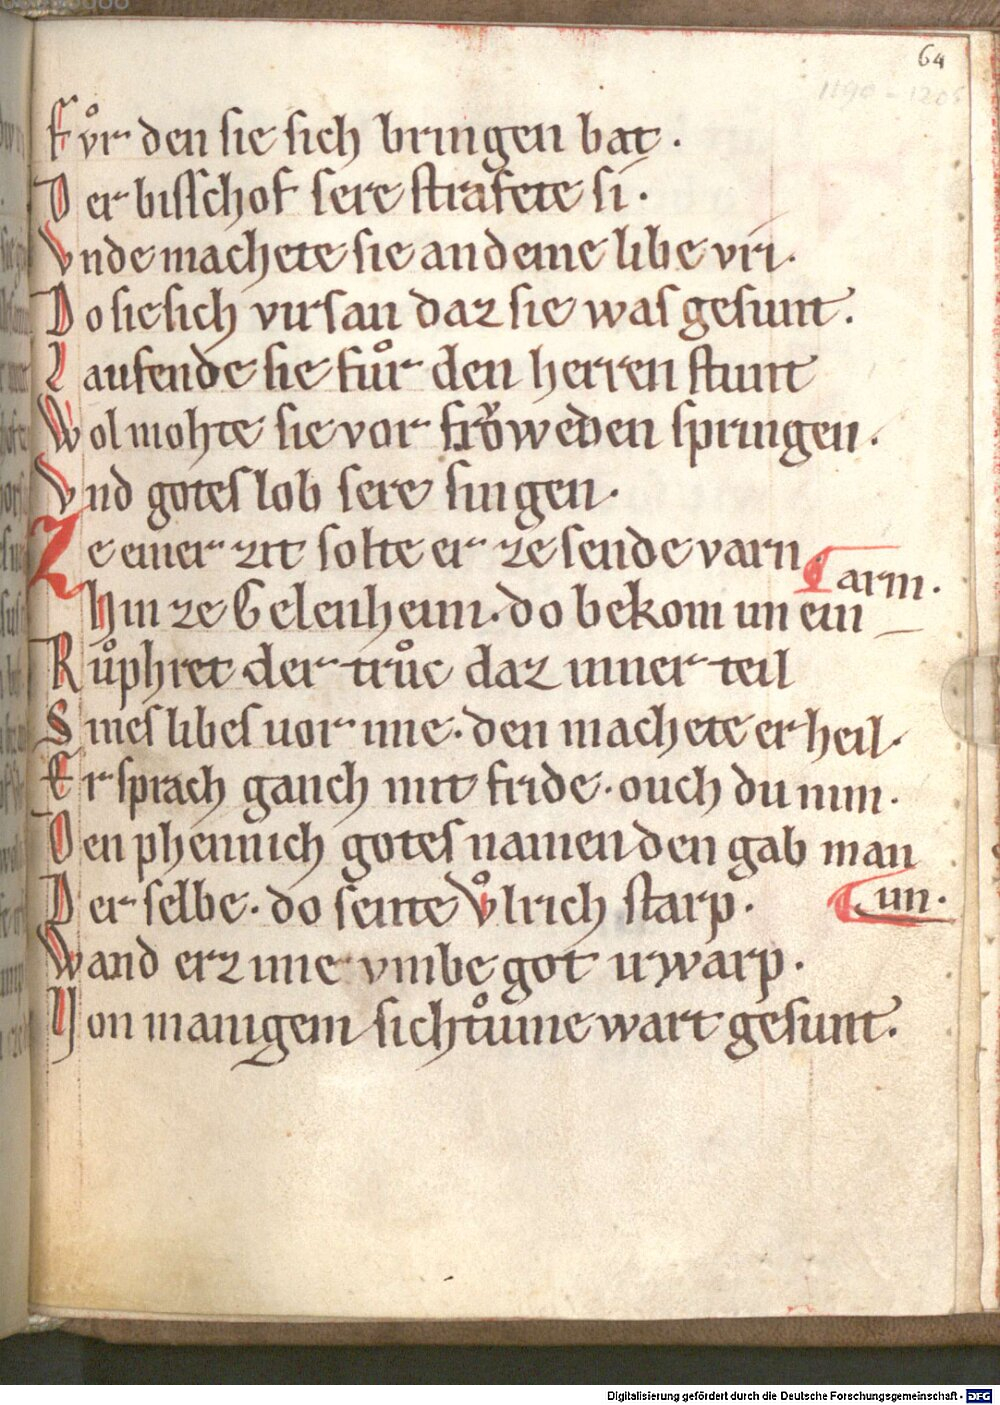 64
1190 - 1205
Fvͦr den sie sich bringen bat .
Der bisschof sere strafete si .
Vnde machete sie an deme libe vri .
Do sie sich virsan daz sie was gesunt .
Laufende sie fuͦr den herren stunt
Wol mohte sie vor froͮweden springen .
Vnd gotes lob sere singen .
Ze einer zit solte er ze sende varn
arm .
Hin ze Geilenheim . do bekom im ein
Ruͦphret der truͦc daz inner teil
Sines libes vor ime . den machete er heil .
Er sprach ganch mit fride . ouch du nim .
Den phennich gotes namen den gab man
im .
Der selbe . do seinte Vͦlrich starp .
Wand er zime vmbe got irwarp .
Von manigem sichtuͦme wart gesunt .
Digitalisierung gefördert durch die Deutsche Forschungsgemeinschaft - DFG